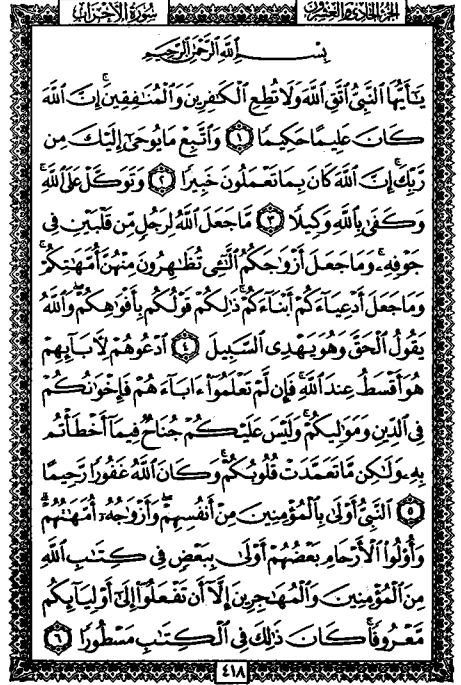 سُورَةُ الأَحْزَابِ
الجُزْءُ الحَادِي وَالعِشْرُونَ
بِسْمِ ٱللَّهِ ٱلرَّحْمَٰنِ ٱلرَّحِيمِ
يَٰٓأَيُّهَا ٱلنَّبِىُّ ٱتَّقِ ٱللَّهَ وَلَا تُطِعِ ٱلْكَٰفِرِينَ وَٱلْمُنَٰفِقِينَ ۗ إِنَّ ٱللَّهَ
كَانَ عَلِيمًا حَكِيمًا ١ وَٱتَّبِعْ مَا يُوحَىٰٓ إِلَيْكَ مِن
رَّبِّكَ ۚ إِنَّ ٱللَّهَ كَانَ بِمَا تَعْمَلُونَ خَبِيرًا ٢ وَتَوَكَّلْ عَلَى ٱللَّهِ ۚ
وَكَفَىٰ بِٱللَّهِ وَكِيلًا ٣ مَّا جَعَلَ ٱللَّهُ لِرَجُلٍ مِّن قَلْبَيْنِ فِى
جَوْفِهِۦ ۚ وَمَا جَعَلَ أَزْوَٰجَكُمُ ٱلَّٰٓـِٔى تُظَٰهِرُونَ مِنْهُنَّ أُمَّهَٰتِكُمْ ۚ
وَمَا جَعَلَ أَدْعِيَآءَكُمْ أَبْنَآءَكُمْ ۚ ذَٰلِكُمْ قَوْلُكُم بِأَفْوَٰهِكُمْ ۖ وَٱللَّهُ
يَقُولُ ٱلْحَقَّ وَهُوَ يَهْدِى ٱلسَّبِيلَ ٤ ٱدْعُوهُمْ لِءَابَآئِهِمْ
هُوَ أَقْسَطُ عِندَ ٱللَّهِ ۚ فَإِن لَّمْ تَعْلَمُوٓا۟ ءَابَآءَهُمْ فَإِخْوَٰنُكُمْ
فِى ٱلدِّينِ وَمَوَٰلِيكُمْ ۚ وَلَيْسَ عَلَيْكُمْ جُنَاحٌ فِيمَآ أَخْطَأْتُم
بِهِۦ وَلَٰكِن مَّا تَعَمَّدَتْ قُلُوبُكُمْ ۚ وَكَانَ ٱللَّهُ غَفُورًا رَّحِيمًا
٥ ٱلنَّبِىُّ أَوْلَىٰ بِٱلْمُؤْمِنِينَ مِنْ أَنفُسِهِمْ ۖ وَأَزْوَٰجُهُۥٓ أُمَّهَٰتُهُمْ ۗ
وَأُو۟لُوا۟ ٱلْأَرْحَامِ بَعْضُهُمْ أَوْلَىٰ بِبَعْضٍ فِى كِتَٰبِ ٱللَّهِ
مِنَ ٱلْمُؤْمِنِينَ وَٱلْمُهَٰجِرِينَ إِلَّآ أَن تَفْعَلُوٓا۟ إِلَىٰٓ أَوْلِيَآئِكُم
مَّعْرُوفًا ۚ كَانَ ذَٰلِكَ فِى ٱلْكِتَٰبِ مَسْطُورًا ٦
٤١٨